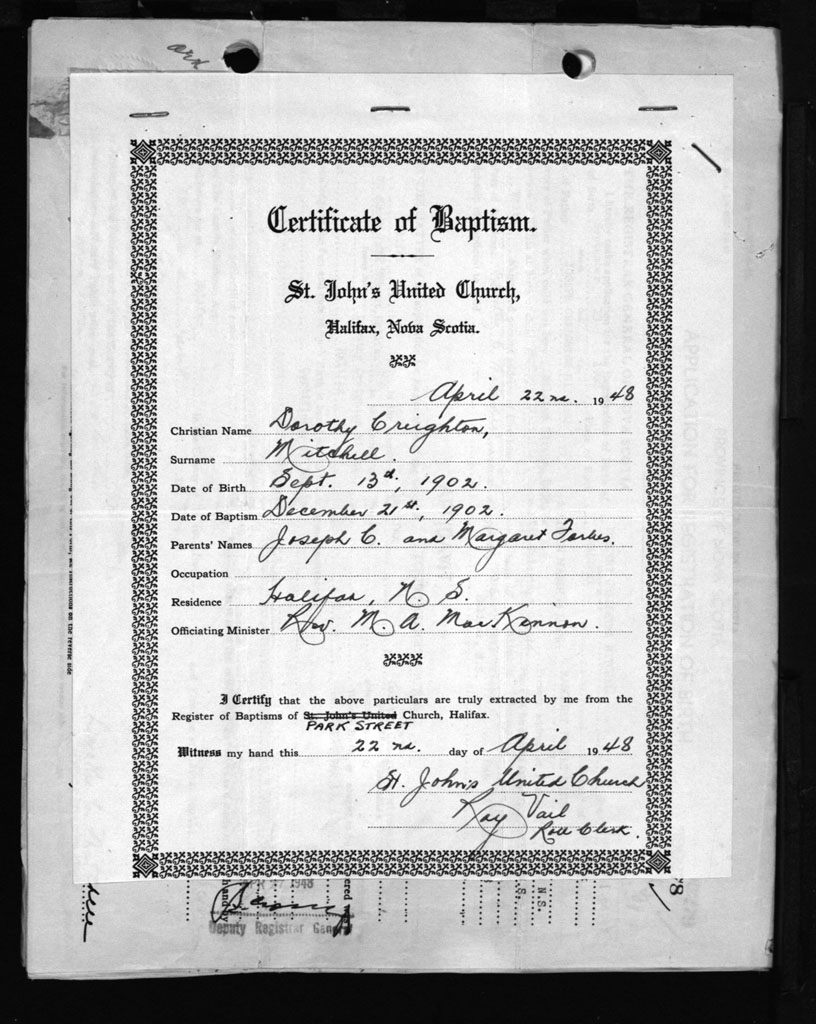 ark
Certificate of Baptism.
St. John's United Church,
Halifax, Nova Scotia.
April 22nd. 1948
Christian Name Dorothy Creighton,
Surname Mitchell.
Date of Birth Sept. 13th, 1902.
Date of Baptism December 21st, 1902.
Parents' Names Joseph C. and Margaret Forbes.
Occupation
Residence Halifax, N. S.
Officiating Minister Rev. M. A. MacKinnon.
I Certify that the above particulars are truly extracted by me from the
Register of Baptisms of St. John's United Church, Halifax.
PARK STREET
Witness my hand this 22nd. day of April 1948
St. John's United Church
Ray Vail
Roll Clerk.
17 1948
Deputy Registrar General
N.S.
on the reverse side